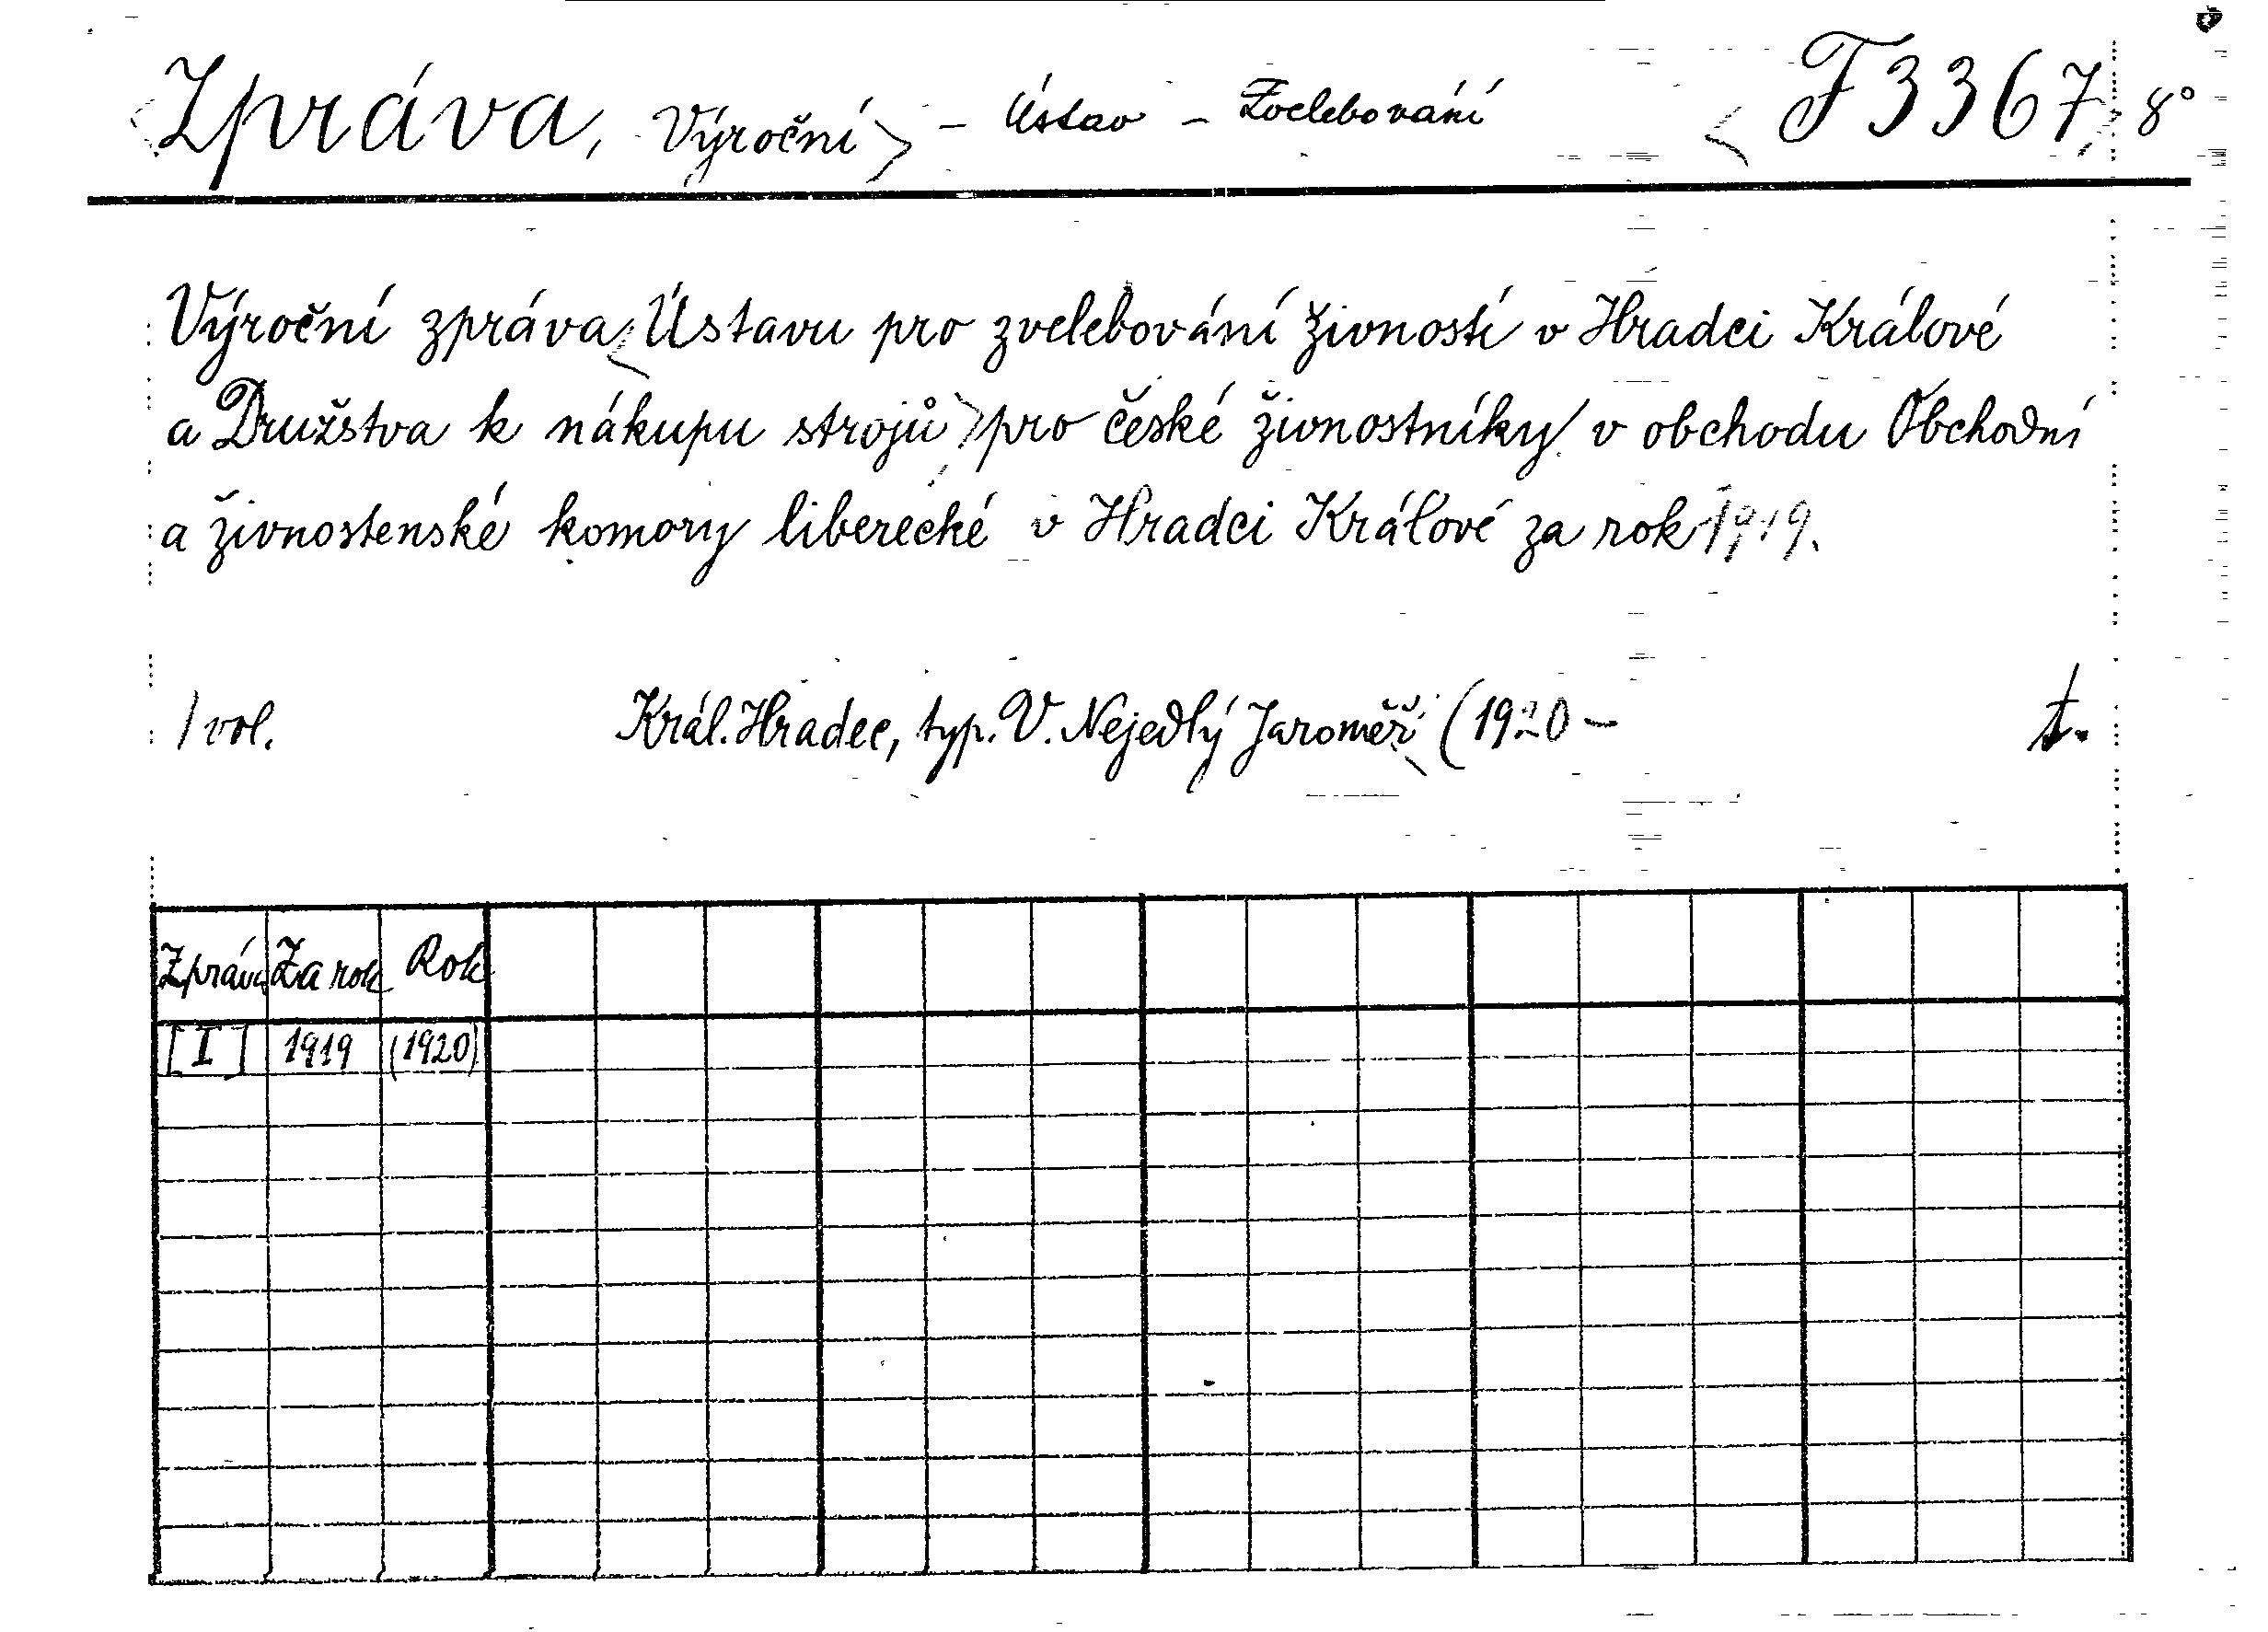 <Zpráva, Výroční> - Ústav - Zvelebování <F 3367> 8°
Výroční zpráva <Ústavu pro zvelebování živností v Hradci Králové
a Družstva k nákupu strojů> pro české živnostníky v obchodu Obchodní
a živnostenské komory liberecké v Hradci Králové za rok 1919.
1 vol. Král. Hradec, typ. V. Nejedlý Jaroměř (1920 - t.
Zpráva Za rok Rok
[I] 1919 (1920)